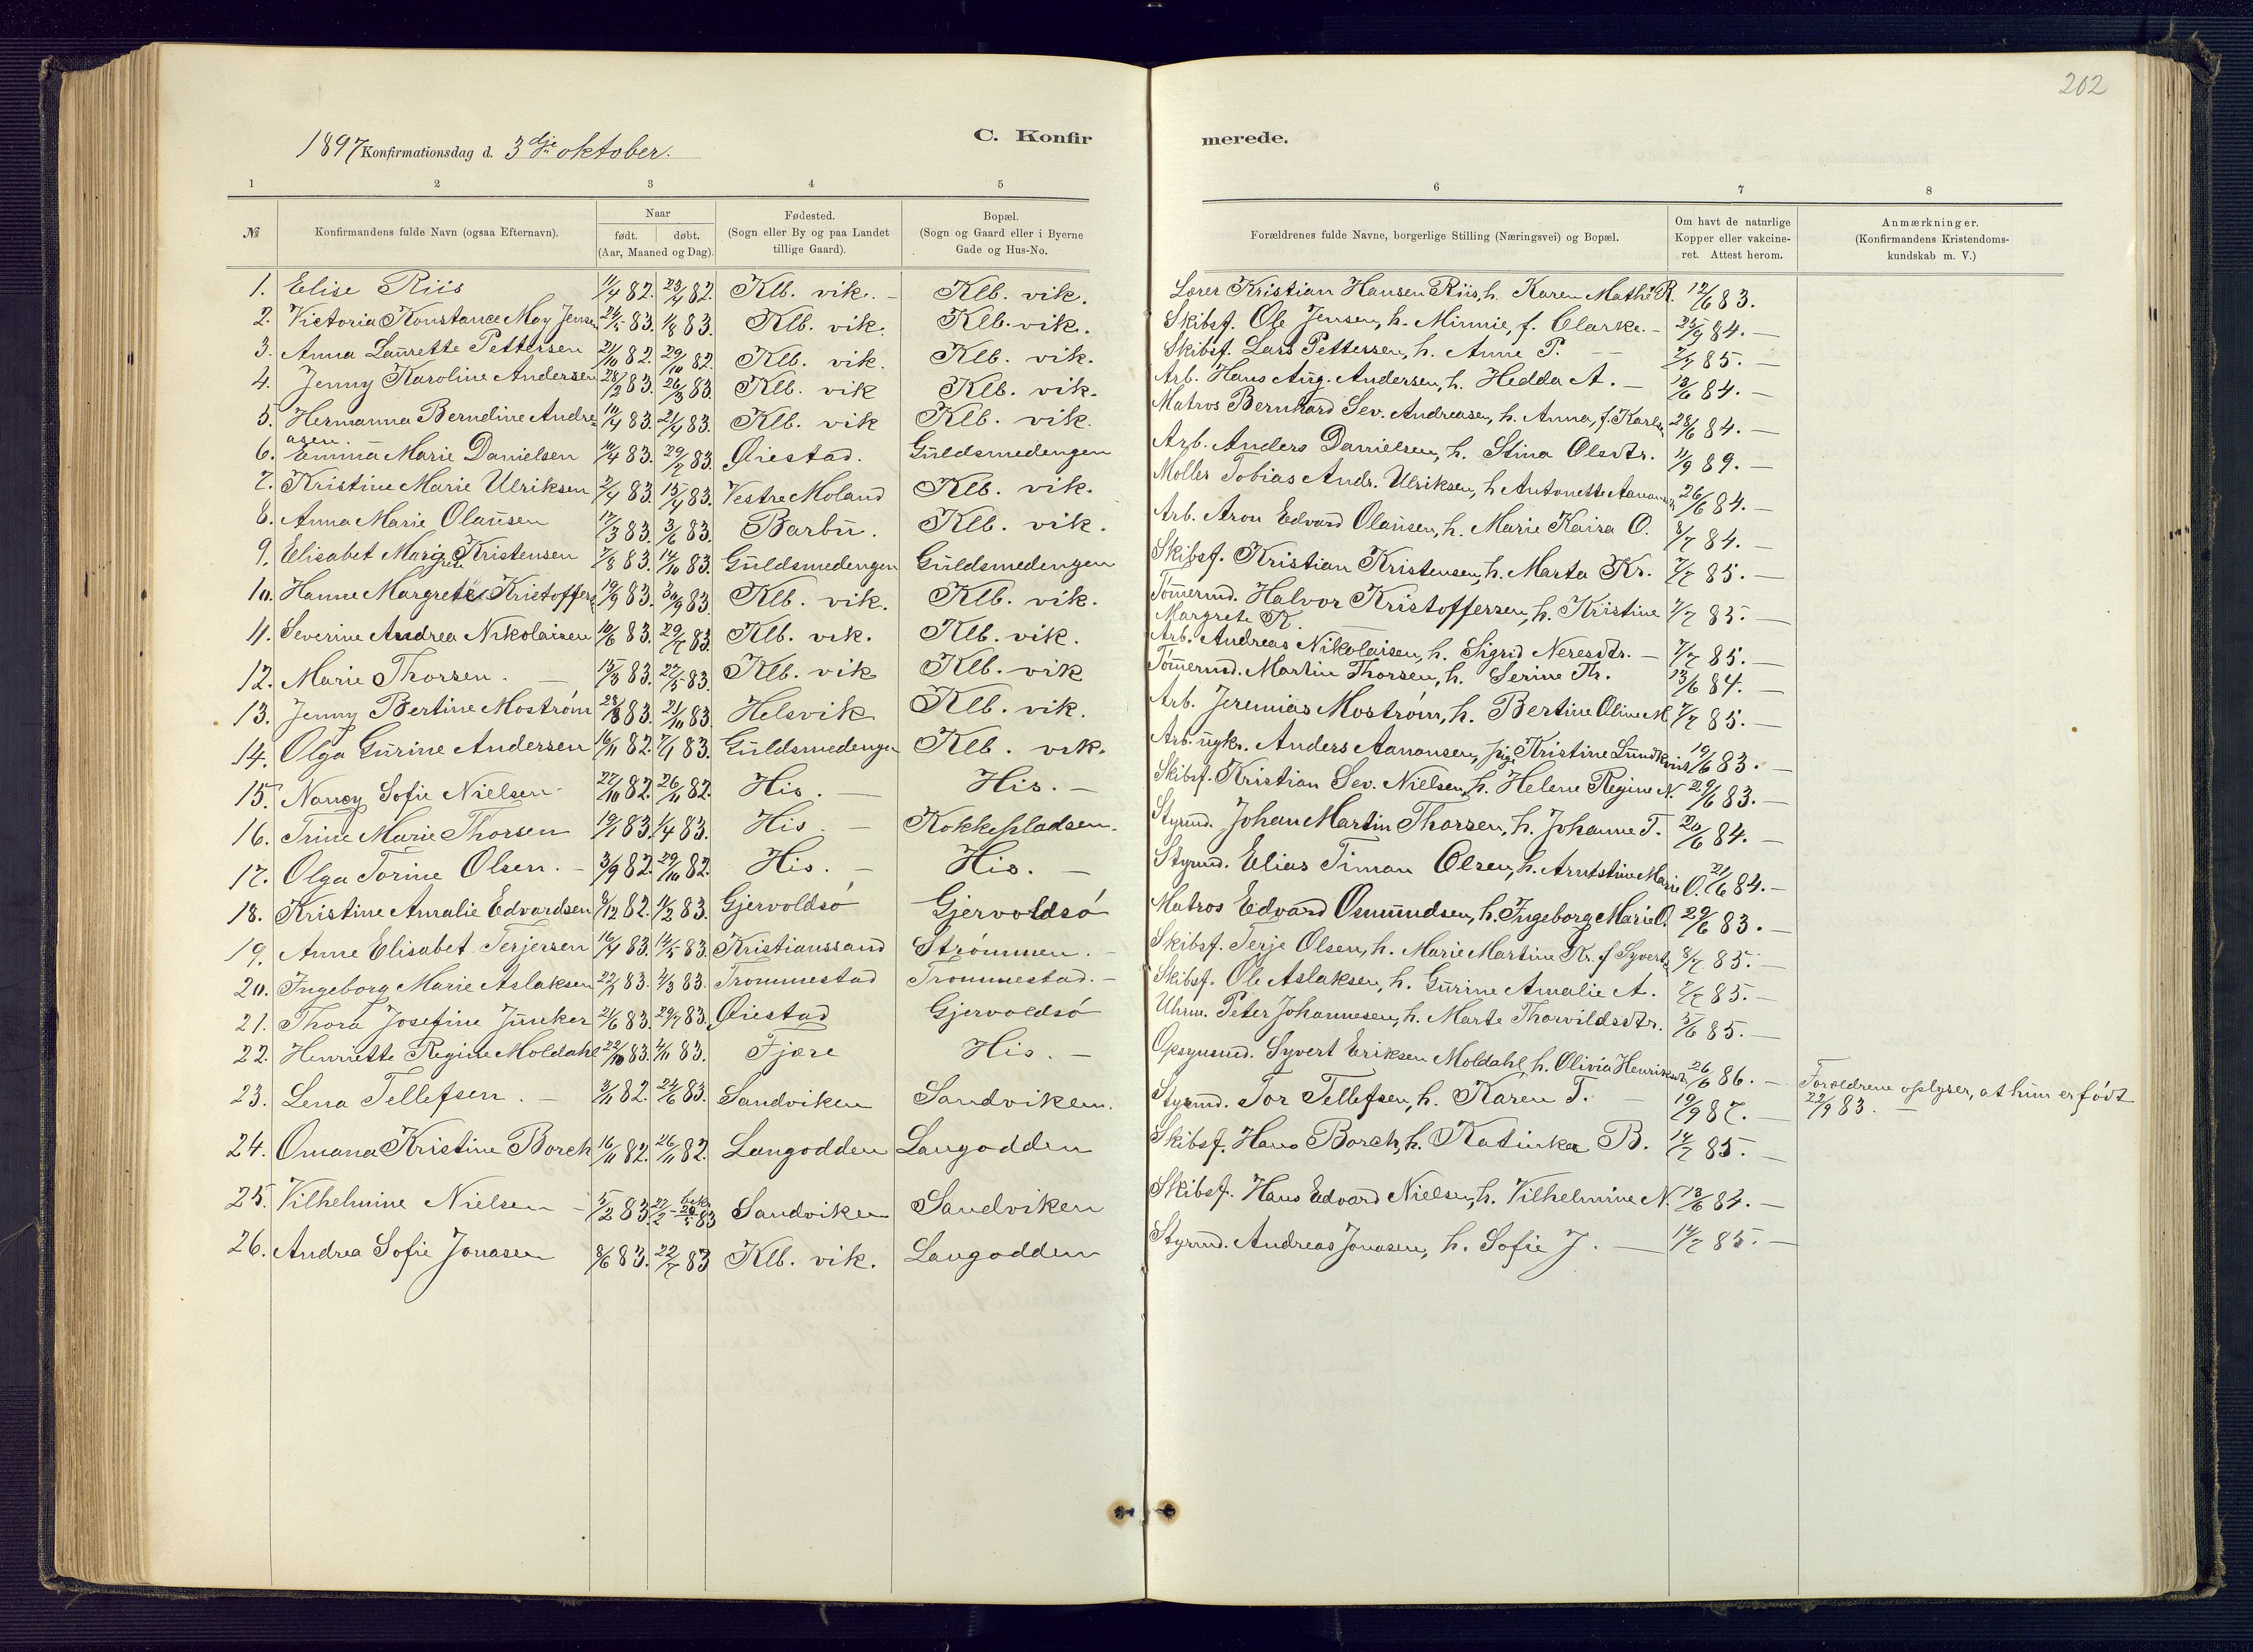 202
1897 Konfirmationsdag d. 3dje oktober.
C. Konfirmerede.
1 2 3 4 5 6 7 8
№
Konfirmandens fulde Navn (ogsaa Efternavn).
Naar
født. døbt.
(Aar, Maaned og Dag).
Fødested.
(Sogn eller By og paa Landet
tillige Gaard).
Bopæl.
(Sogn og Gaard eller i Byerne
Gade og Hus-No.
Forældrenes fulde Navne, borgerlige Stilling (Næringsvei) og Bopæl.
Om havt de naturlige
Kopper eller vakcine-
ret. Attest herom.
Anmærkninger.
(Konfirmandens Kristendoms-
kundskab m. V.)
1. Elise Riis 11/4 82. 23/4 82. Klb. vik. - Klb. vik. Lærer Kristian Hansen Riis, h. Karen Mathe R. 12/6 83.
2. Victoria Konstance May Jensen 24/5 83. 1/8 83. Klb. vik. Klb. vik. Skibsf. Ole Jensen, h. Minnie, f. Clarke. - 25/9 84. -
3. Anna Laurette Pettersen 21/10 82. 29/10 82. Klb. vik. Klb. vik. Skibsf. Lars Pettersen, h. Anne P. - 7/7 85. -
4. Jenny Karoline Andersen 28/2 83. 26/3 83. Klb. vik Klb. vik. Arb. Hans Aug. Andersen, h. Hedda A. - 13/6 84. -
5. Hermanna Berndine Andre- 10/4 83. 21/4 83. Klb. vik Klb. vik. Matros Bernhard Sev. Andreasen, h. Anna, f. Karlsen 28/6 84. -
asen.
6. Emma Marie Danielsen 10/4 83. 29/7 83. Øiestad. Guldsmedengen Arb. Anders Danielsen, h. Stina Olsdtr. 11/9 89. -
7. Kristine Marie Ulriksen 2/4 83. 15/4 83. Vestre Moland Klb. vik. Møller Tobias Andr. Ulriksen, h. Antonette 26/6 84. -
8. Anna Marie Olausen 17/3 83. 3/6 83. Barbu. Klb. vik. Arb. Aron Edvard Olausen, h. Marie Kaisa O. 8/7 84. -
9. Elisabet Margrete Kristensen 7/8 83. 14/10 83. Guldsmedengen Guldsmedengen Skibsf. Kristian Kristensen, h. Marta Kr. 7/7 85. -
10. Hanne Margrete Kristoffers. 19/9 83. 30/9 83. Klb. vik. Klb. vik. Tømermd. Halvor Kristoffersen, h. Kristine 7/7 85. -
Margrete K.
11. Severine Andrea Nikolaisen 10/6 83. 29/7 83. Klb. vik. Klb. vik. Arb. Andreas Nikolaisen, h. Sigrid Neresdtr. - 7/7 85. -
12. Marie Thorsen. - 15/3 83. 27/5 83. Klb. vik Klb. vik Tømermd. Martin Thorsen, h. Serine Th. 13/6 84. -
13. Jenny Bertine Mostrøm 28/8 83. 21/10 83 Helsvik Klb. vik. Arb. Jeremias Mostrøm, h. Bertine Oline M. 7/7 85. -
14. Olga Gurine Andersen 16/11 82. 7/1 83. Guldsmedengen Klb. vik. Arb. ugkr. Anders Aanonsen, pige Kristine Lundkvist 19/6 83. -
15. Nancy Sofie Nielsen 27/10 82. 26/11 82. His. - His. - Skibsf. Kristian Sev. Nielsen, h. Helene Regine N. 29/6 83. -
16. Trine Marie Thorsen 19/1 83. 1/4 83. His. - Kokkepladsen. Styrmd. Johan Martin Thorsen, h. Johanne T. 20/6 84. -
17. Olga Torine Olsen. - 3/9 82. 29/10 82. His. - His. - Styrmd. Elias Timan Olsen, h. Arntstine Marie O. 21/6 84. -
18. Kristine Amalie Edvardsen 8/12 82. 11/2 83. Gjervoldsø Gjervoldsø Matros Edvard Osmundsen, h. Ingeborg Marie O. 29/6 83. -
19. Anne Elisabet Terjersen 16/4 83. 14/5 83. Kristianssand Strømmen. Skibsf. Terje Olsen, h. Marie Martine Kr. f Syverts. 8/7 85. -
20. Ingeborg Marie Aslaksen 22/1 83. 4/3 83. Trommestad Trommestad. - Skibsf. Ole Aslaksen, h. Gurine Amalie A. 7/7 85. -
21. Thora Josefine Juncker 21/6 83. 29/7 83. Øiestad Gjervoldsø Uhrm. Peter Johannesen, h. Marte Thorvildsdtr. 5/6 85. -
22. Henriette Regine Moldahl 22/10 83. 4/11 83. Fjære His. - Opsynsmd. Syvert Eriksen Moldahl, h. Olivia Henriksdtr. 26/6 86. -
23. Lena Tellefsen. - 3/11 82. 24/6 83. Sandviken Sandviken. Styrmd. Tor Tellefsen, h. Karen T. - 19/9 87. - Forældrene oplyser, at hun er født
22/9 83. -
24. Omana Kristine Borch 16/11 82. 26/11 82. Langodden Langodden Skibsf. Hans Borch, h. Katinka B. 14/7 85. -
25. Vilhelmine Nielsen - 5/2 83. 27/2 - bek 20/5 83 Sandviken Sandviken Skibsf. Hans Edvard Nielsen, h. Vilhelmine N. 13/6 84. -
26. Andrea Sofie Jonasen 8/6 83. 22/7 83 Klb. vik. Langodden Styrmd. Andreas Jonasen, h. Sofie J. - 14/7 85. -